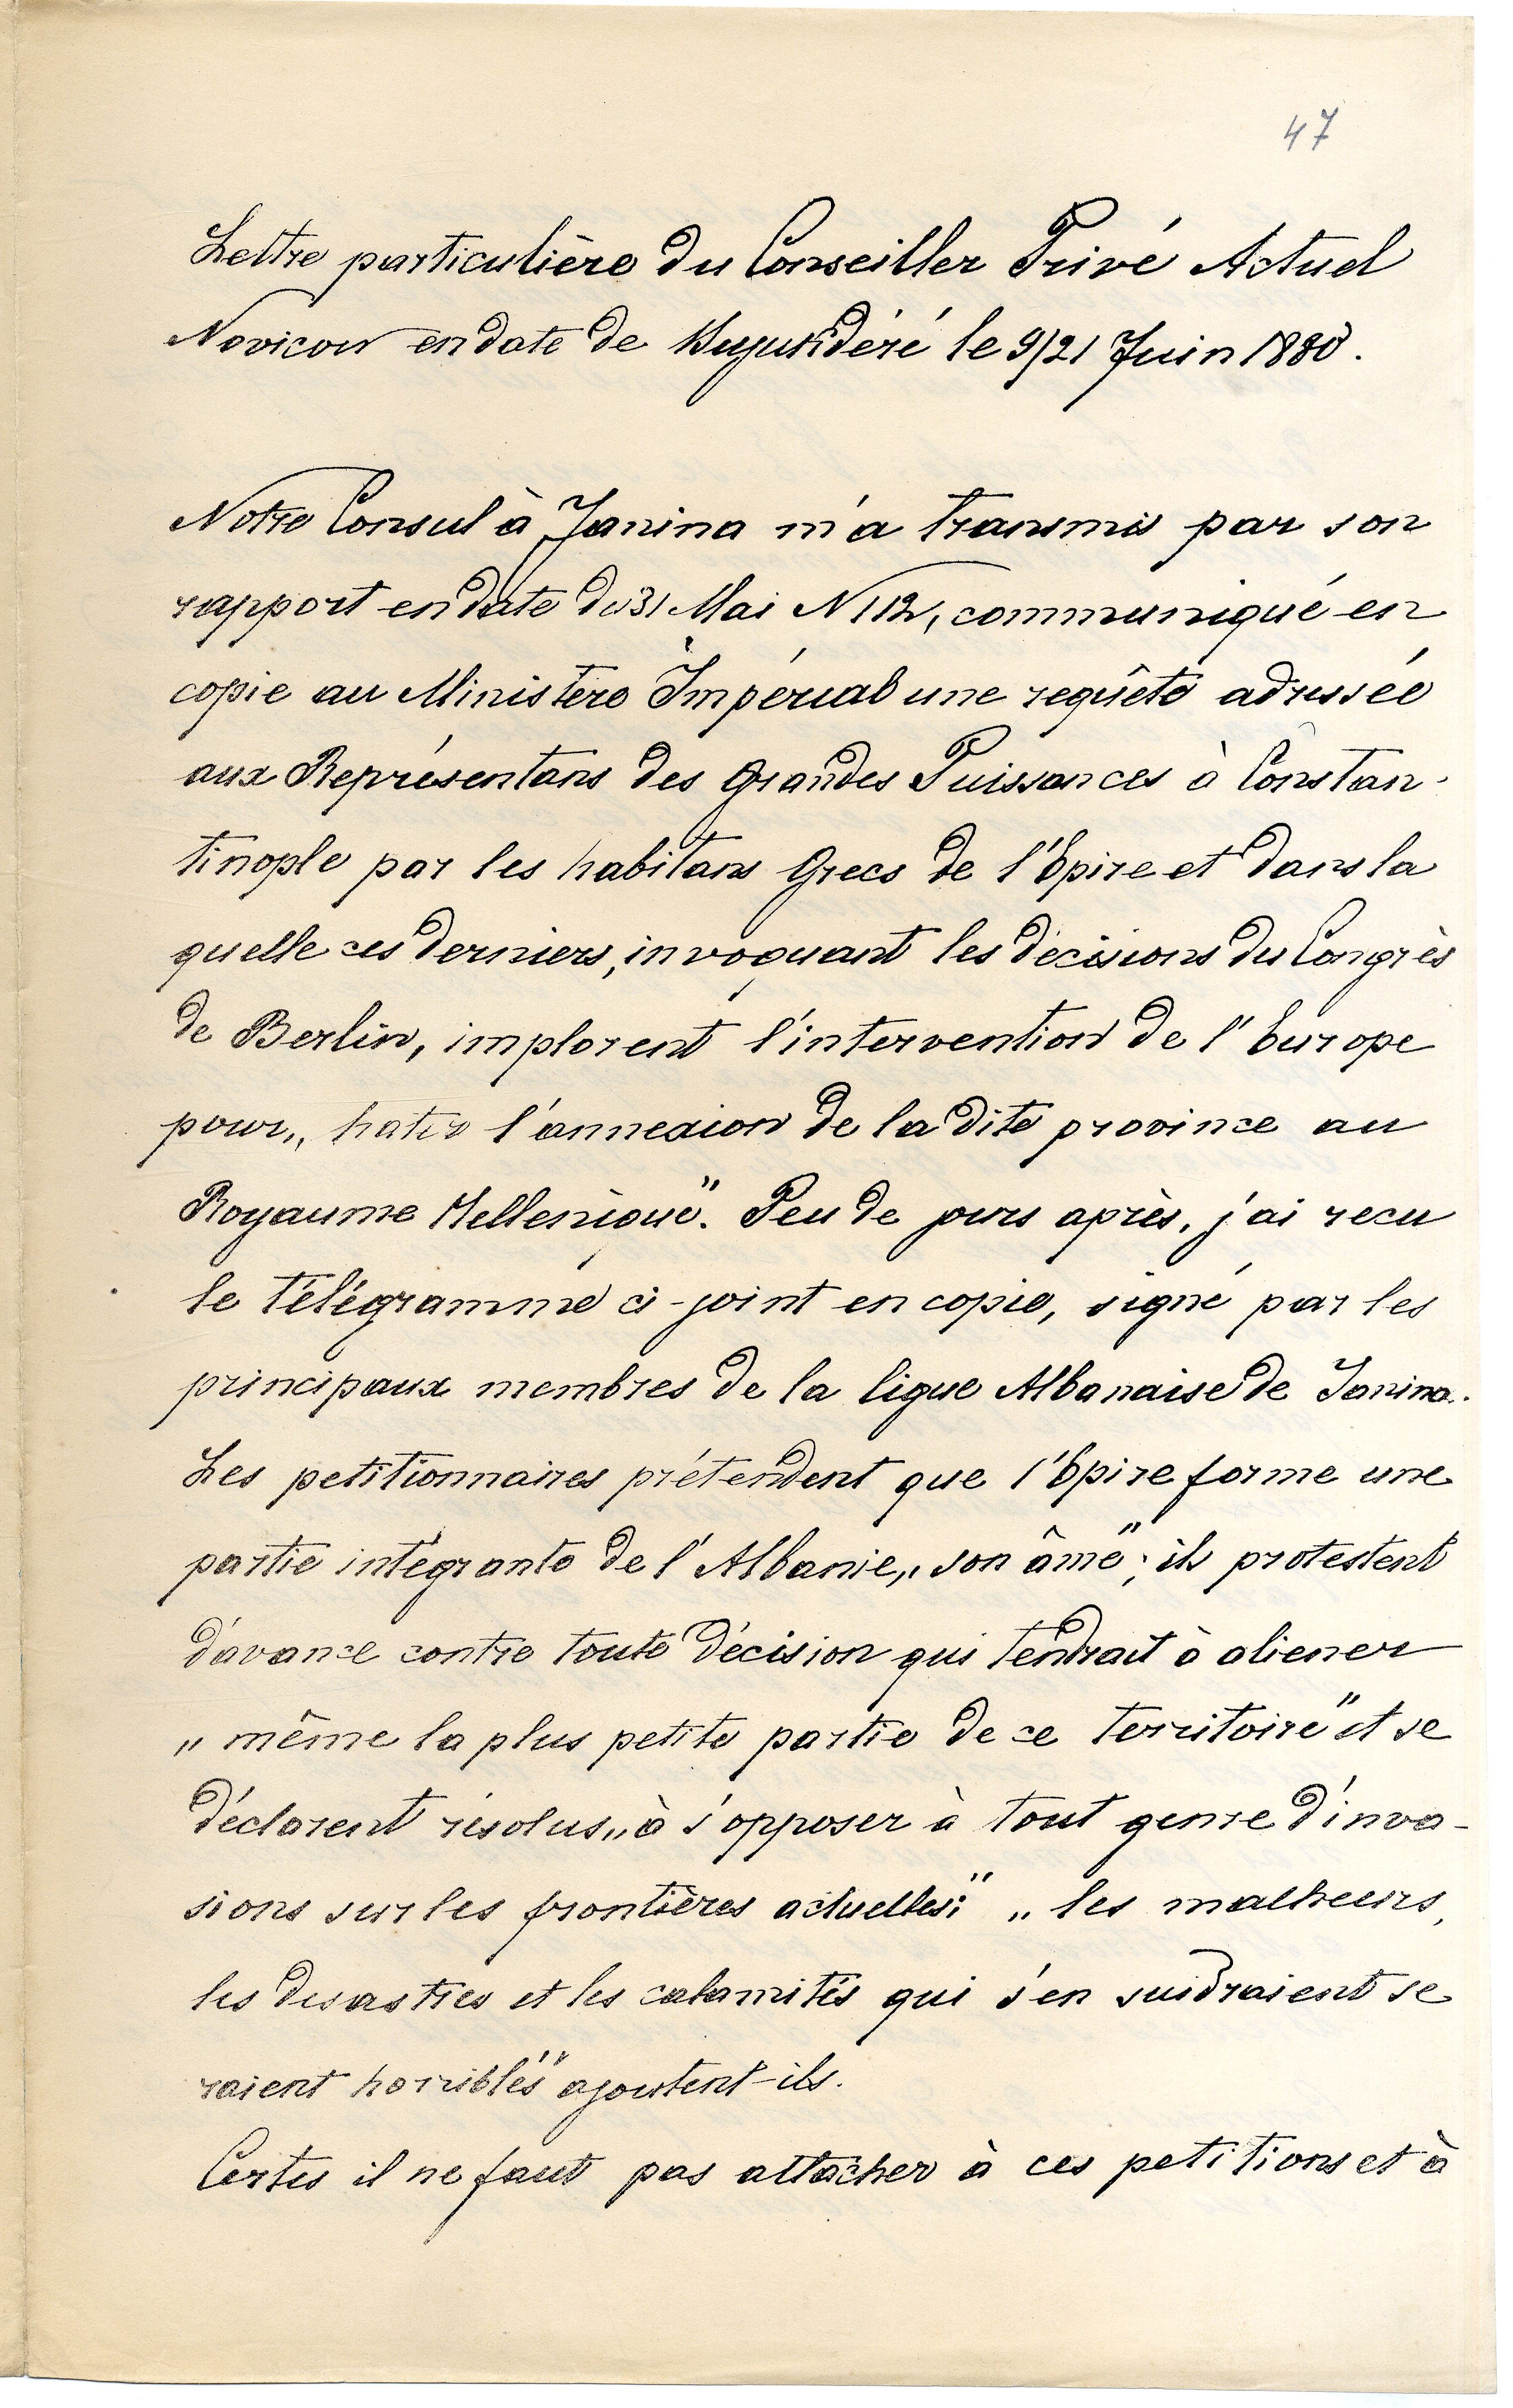 47
Lettre particulière du Conseiller Privé Actuel
Novicow en date de Bujukdéré le 9/21 Juin 1880.
Notre Consul à Janina m'a transmis par son
rapport en date du 31 Mai N 112, communiqué en
copie au Ministère Impérial une requête adressée
aux Représentans des Grandes Puissances à Constan-
tinople par les habitans Grecs de l'Epire et dans la
quelle ces derniers, invoquant les décisions du Congrès
de Berlin, implorent l'intervention de l'Europe
pour „hater l'annexion de la dite province au
Royaume Hellenique". Peu de jours après, j'ai recu
le télégramme ci-joint en copie, signé par les
principaux membres de la ligue Albanaise de Janina.
Les petitionnaires prétendent que l'Epire forme une
partie intégrante de l'Albanie, „son âme"; ils protestent
d'avance contre toute décision qui tendrait à aliener
„même la plus petite partie de ce territoire" et se
déclarent résolus „à s'opposer à tout genre d'inva-
sions sur les frontières actuelles;" „les malheurs,
les desastres et les calamités qui s'en suivraient se
raient horribles" ajoutent-ils.
Certes il ne faut pas attacher à ces petitions et à